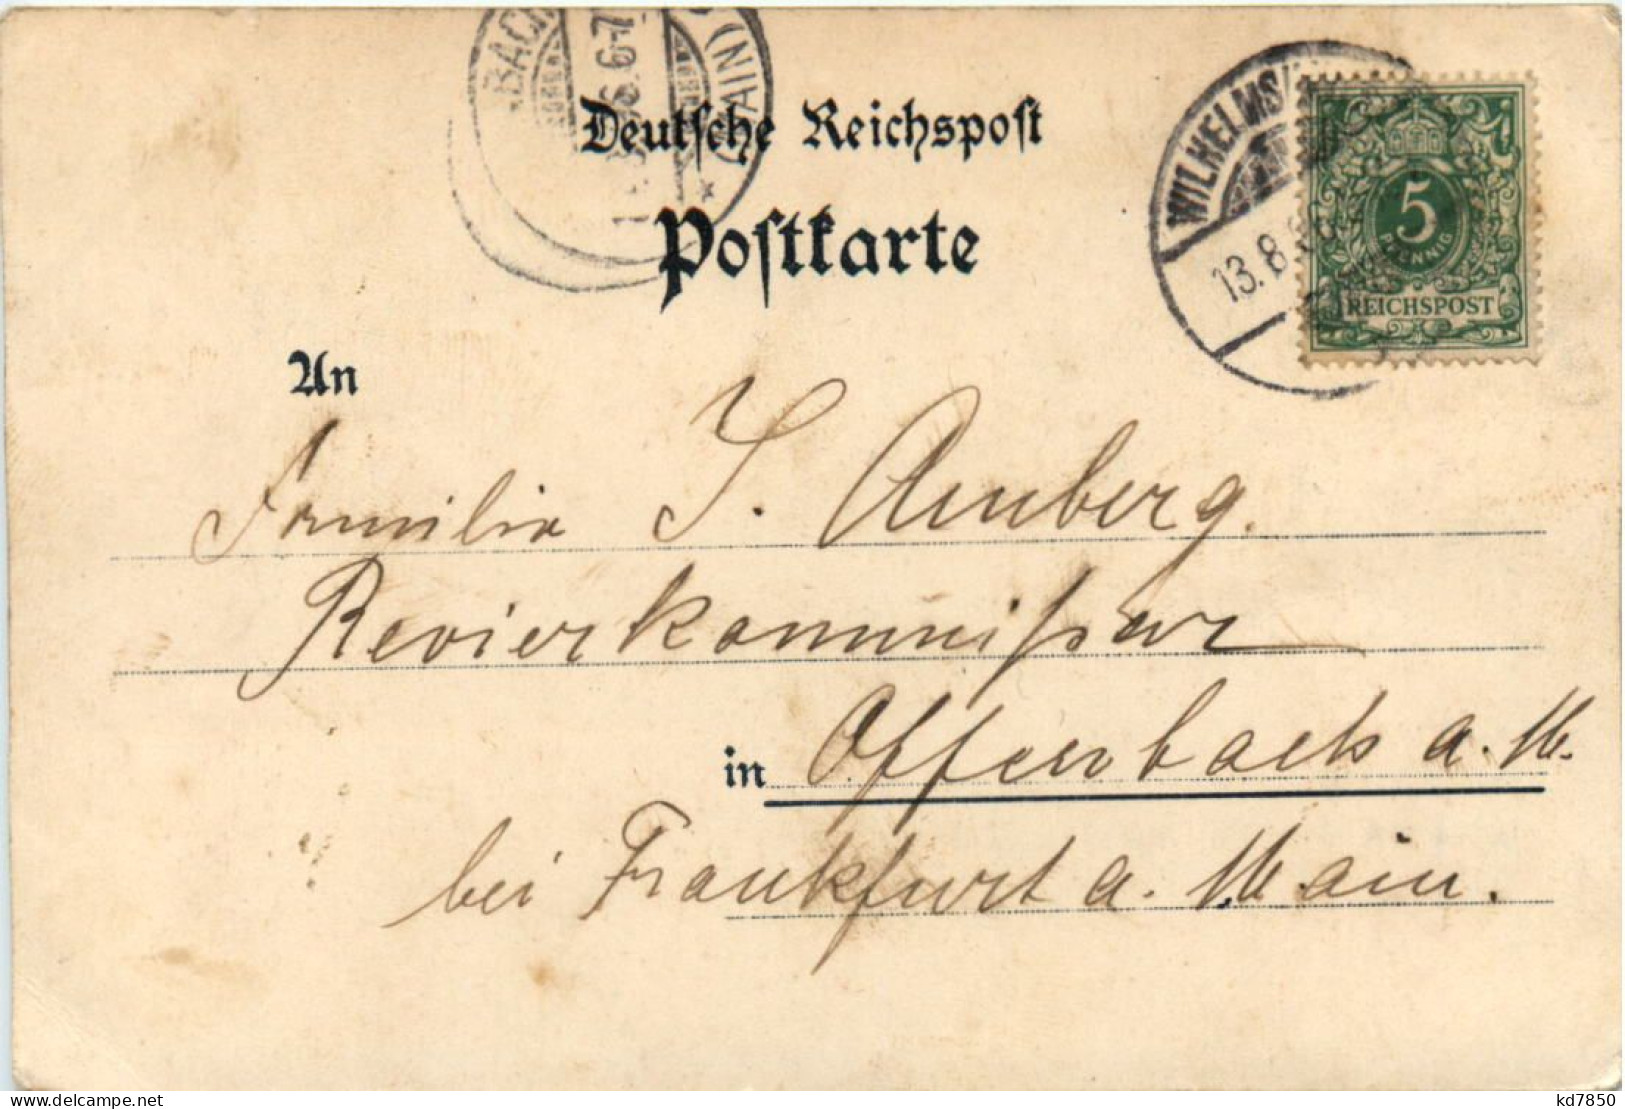 BACH (MAIN)
6-7
Deutsche Reichspost
Postkarte
WILHELMS
13.8.96
5
PFENNIG
REICHSPOST
An
Familie J. Amberg.
Revierkommissar
in Offenbach a. M.
bei Frankfurt a. Main.
kd7850